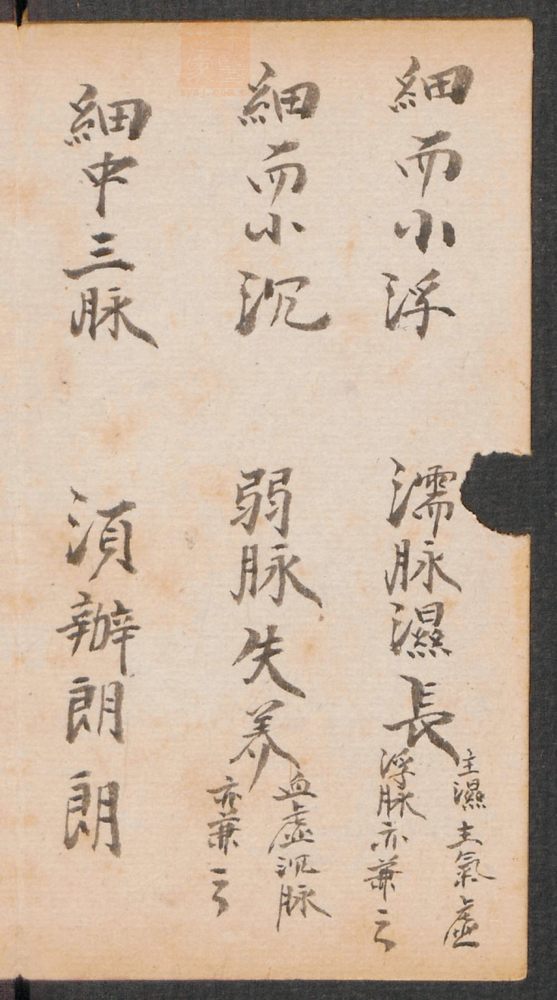 細而小浮　濡脉濕長
主濕主氣虛
浮脉亦兼云
細而小沉　弱脉失养
血虛沉脉
亦兼云
細中三脉　須辦朗朗